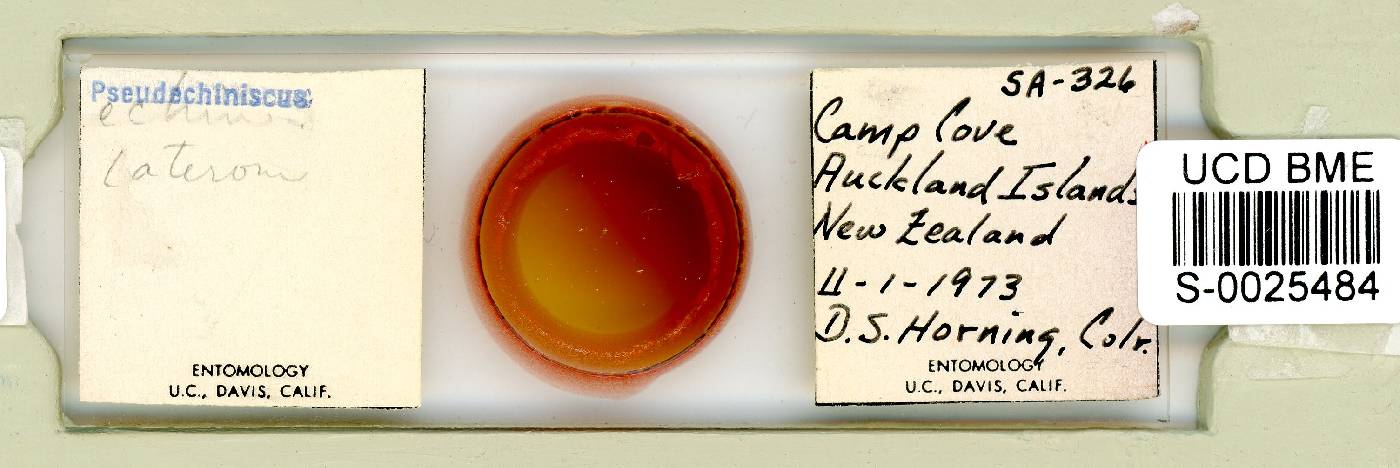 Pseudechiniscus
ENTOMOLOGY
U.C., DAVIS, CALIF.
SA-326
Camp Cove
Auckland Islands
New Zealand
II-1-1973
D.S. Horning, Colr.
ENTOMOLOGY
U.C., DAVIS, CALIF.
UCD BME
S-0025484